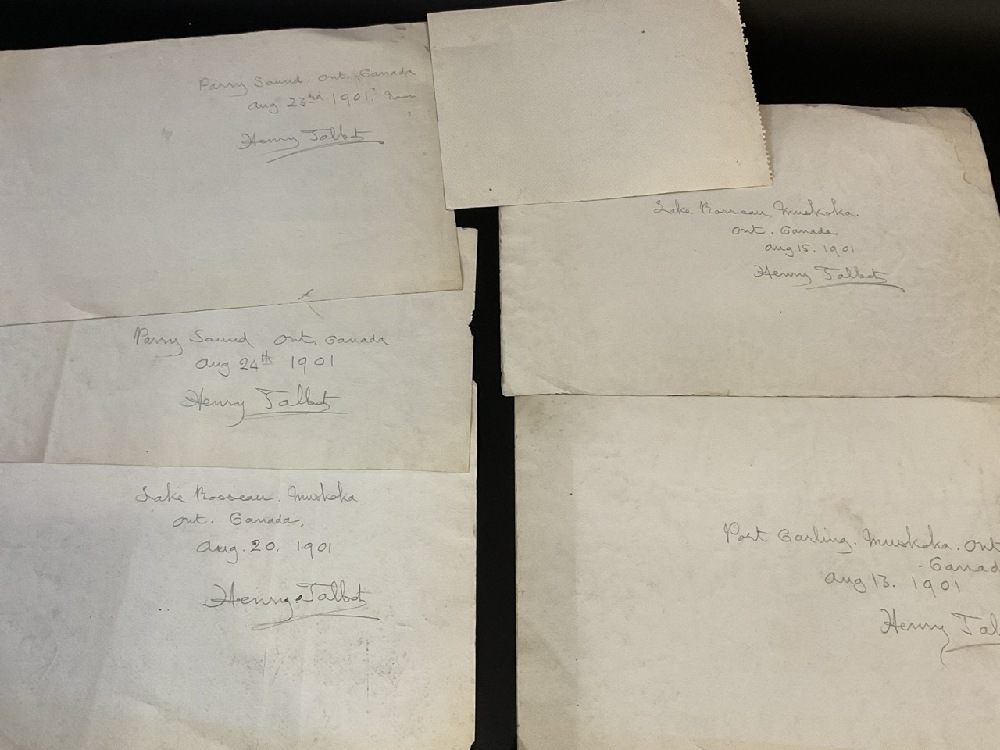 Parry Sound Ont, Canada
Aug 23rd 1901.
Henry Talbot
Parry Sound Ont, Canada
Aug 24th 1901
Henry Talbot
Lake Rosseau, Muskoka
Ont. Canada,
Aug. 20, 1901
Henry Talbot
Lake Rosseau, Muskoka.
Ont. Canada
Aug 15. 1901
Henry Talbot
Port Carling. Muskoka. Ont
Canad
Aug 13. 1901
Henry Tal